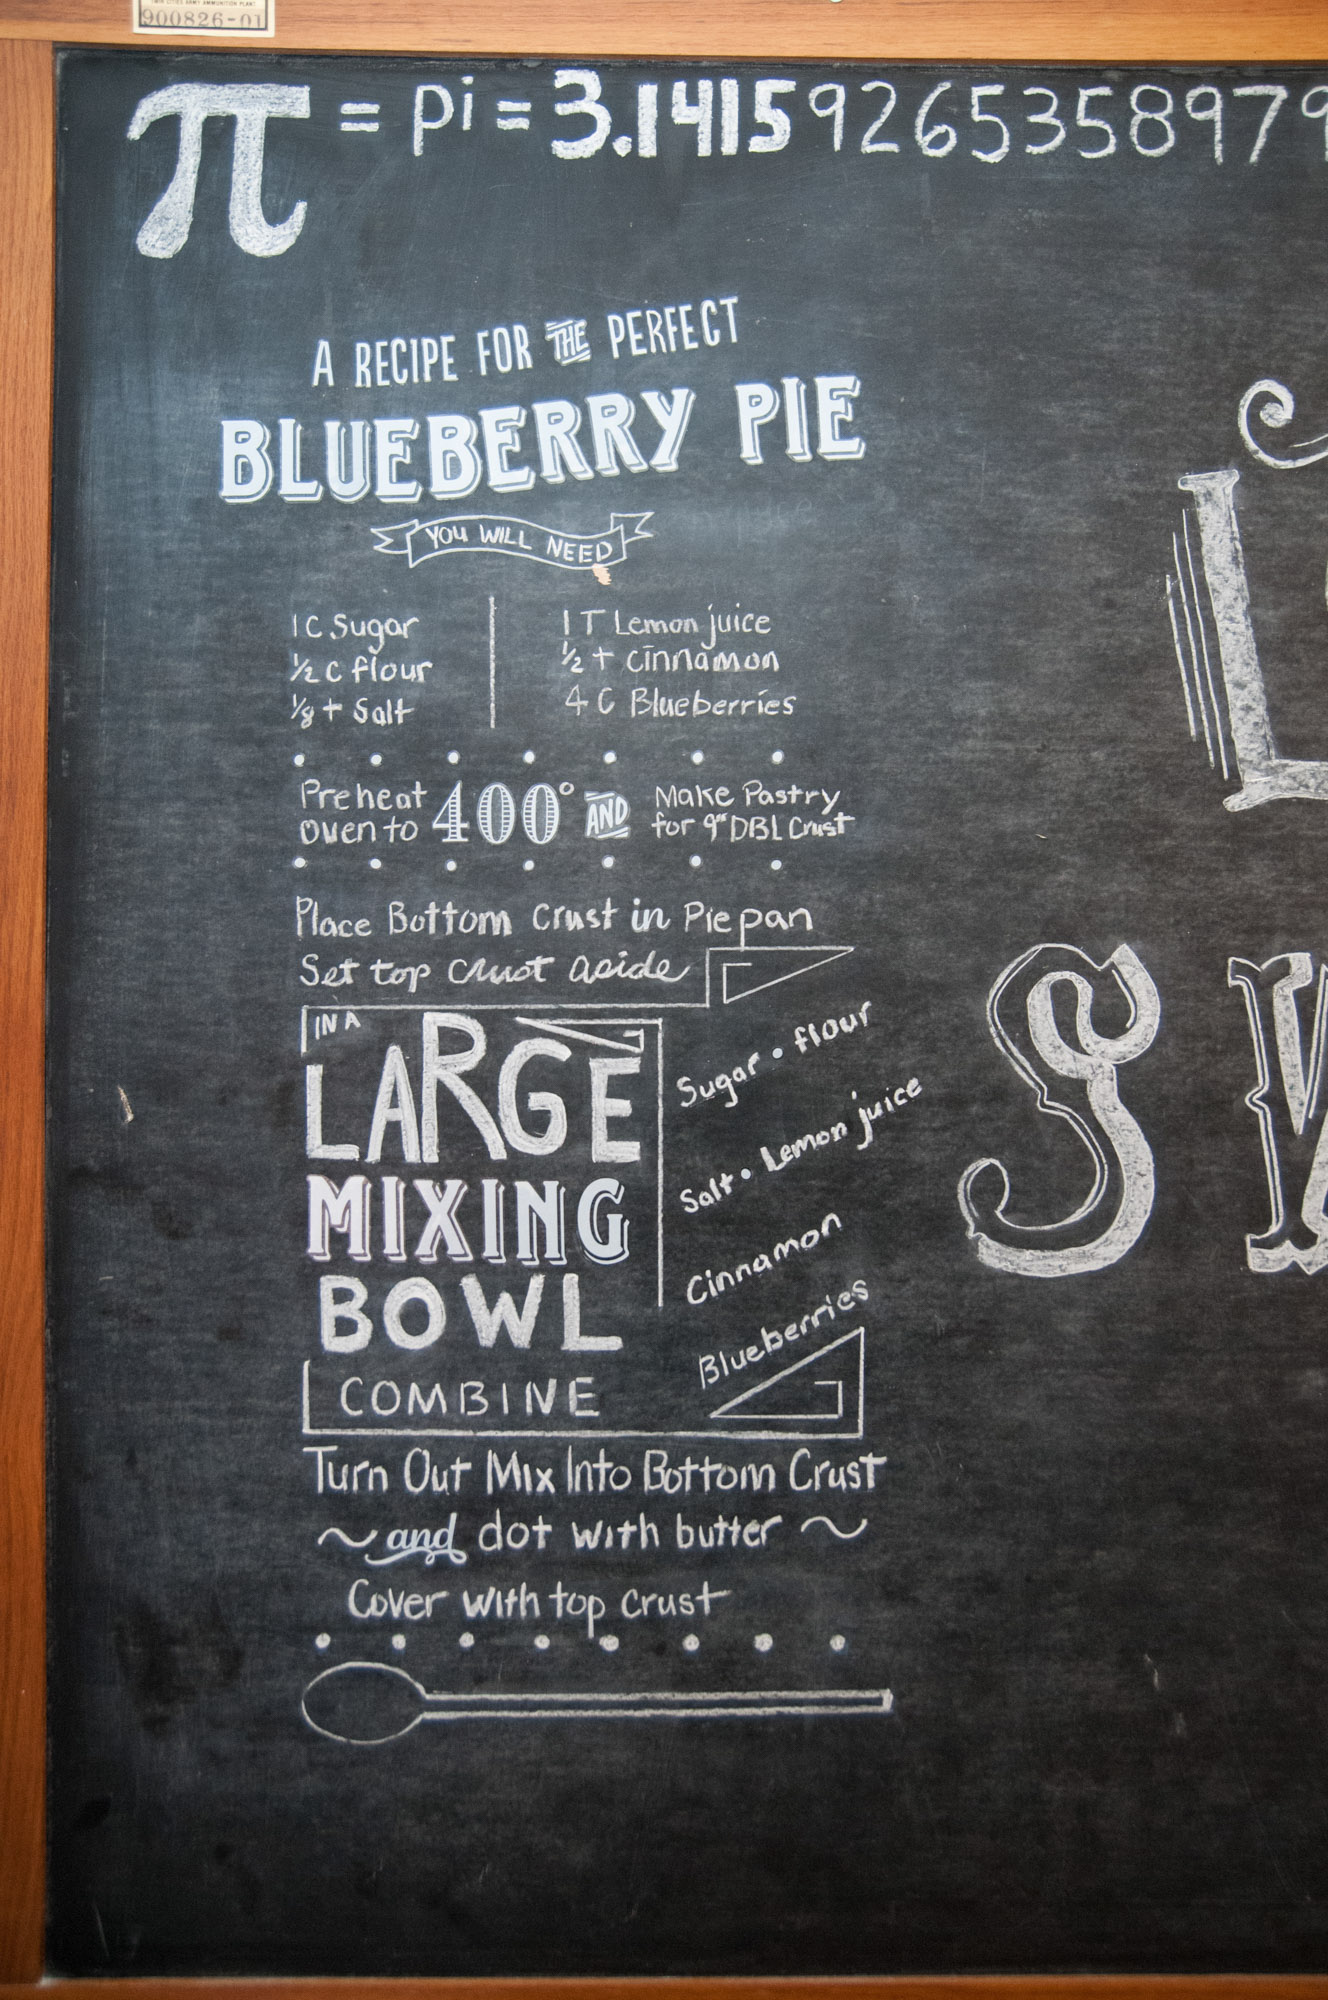 TWIN CITIES ARMY AMMUNITION PLANT
900826-01
π = pi = 3.14159265358979
A RECIPE FOR THE PERFECT
BLUEBERRY PIE
YOU WILL NEED
1 C Sugar
½ C flour
⅛ t Salt
1 T Lemon juice
½ t cinnamon
4 C Blueberries
Preheat
oven to 400° AND
Make Pastry
for 9" DBL Crust
Place Bottom Crust in Pie pan
Set top crust aside
IN A
LARGE
MIXING
BOWL
COMBINE
Sugar • flour
Salt • Lemon juice
Cinnamon
Blueberries
Turn Out Mix Into Bottom Crust
~ and dot with butter ~
Cover with top crust
L
SW